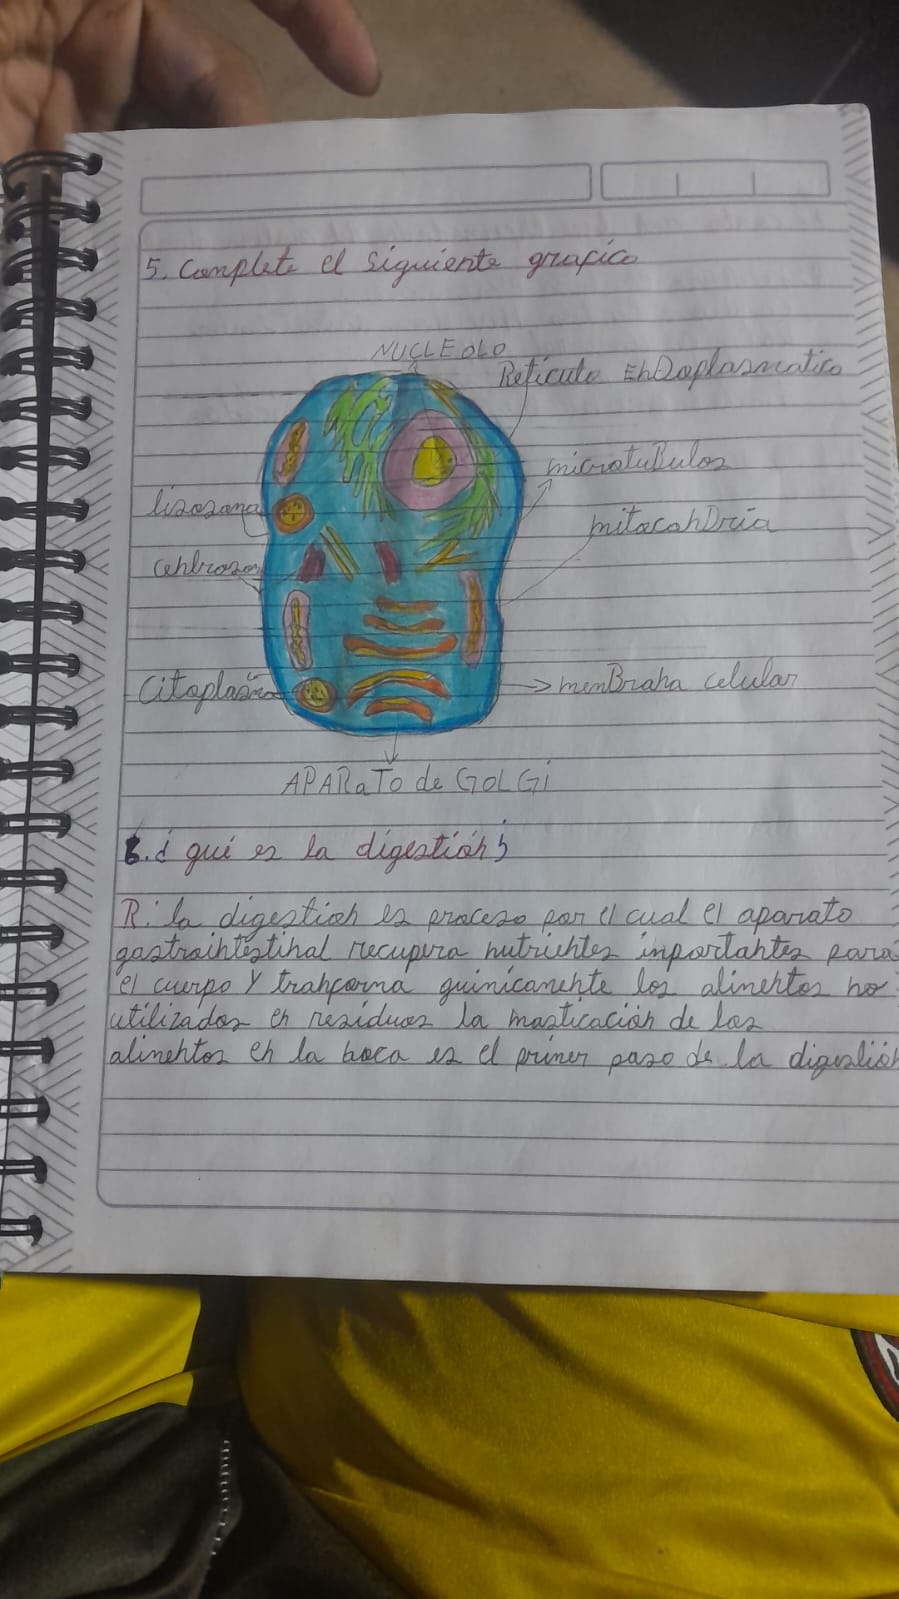 5. Complete el siguiente grafico
NUCLEOLO
Reticulo EnDoplasmatico
microtuBulos
lisosoma
mitoconDria
centrosom
Citoplasma
menBrana celular
APARaTO de GOLGi
6. ¿ qué es la digestión?
R: la digestion es proceso por el cual el aparato
gastrointestinal recupera nutrientes inportantes para
el cuerpo y tranforma quinicanente los alinentos no
utilizados en residuos la masticación de los
alinentos en la boca es el priner paso de la digestión